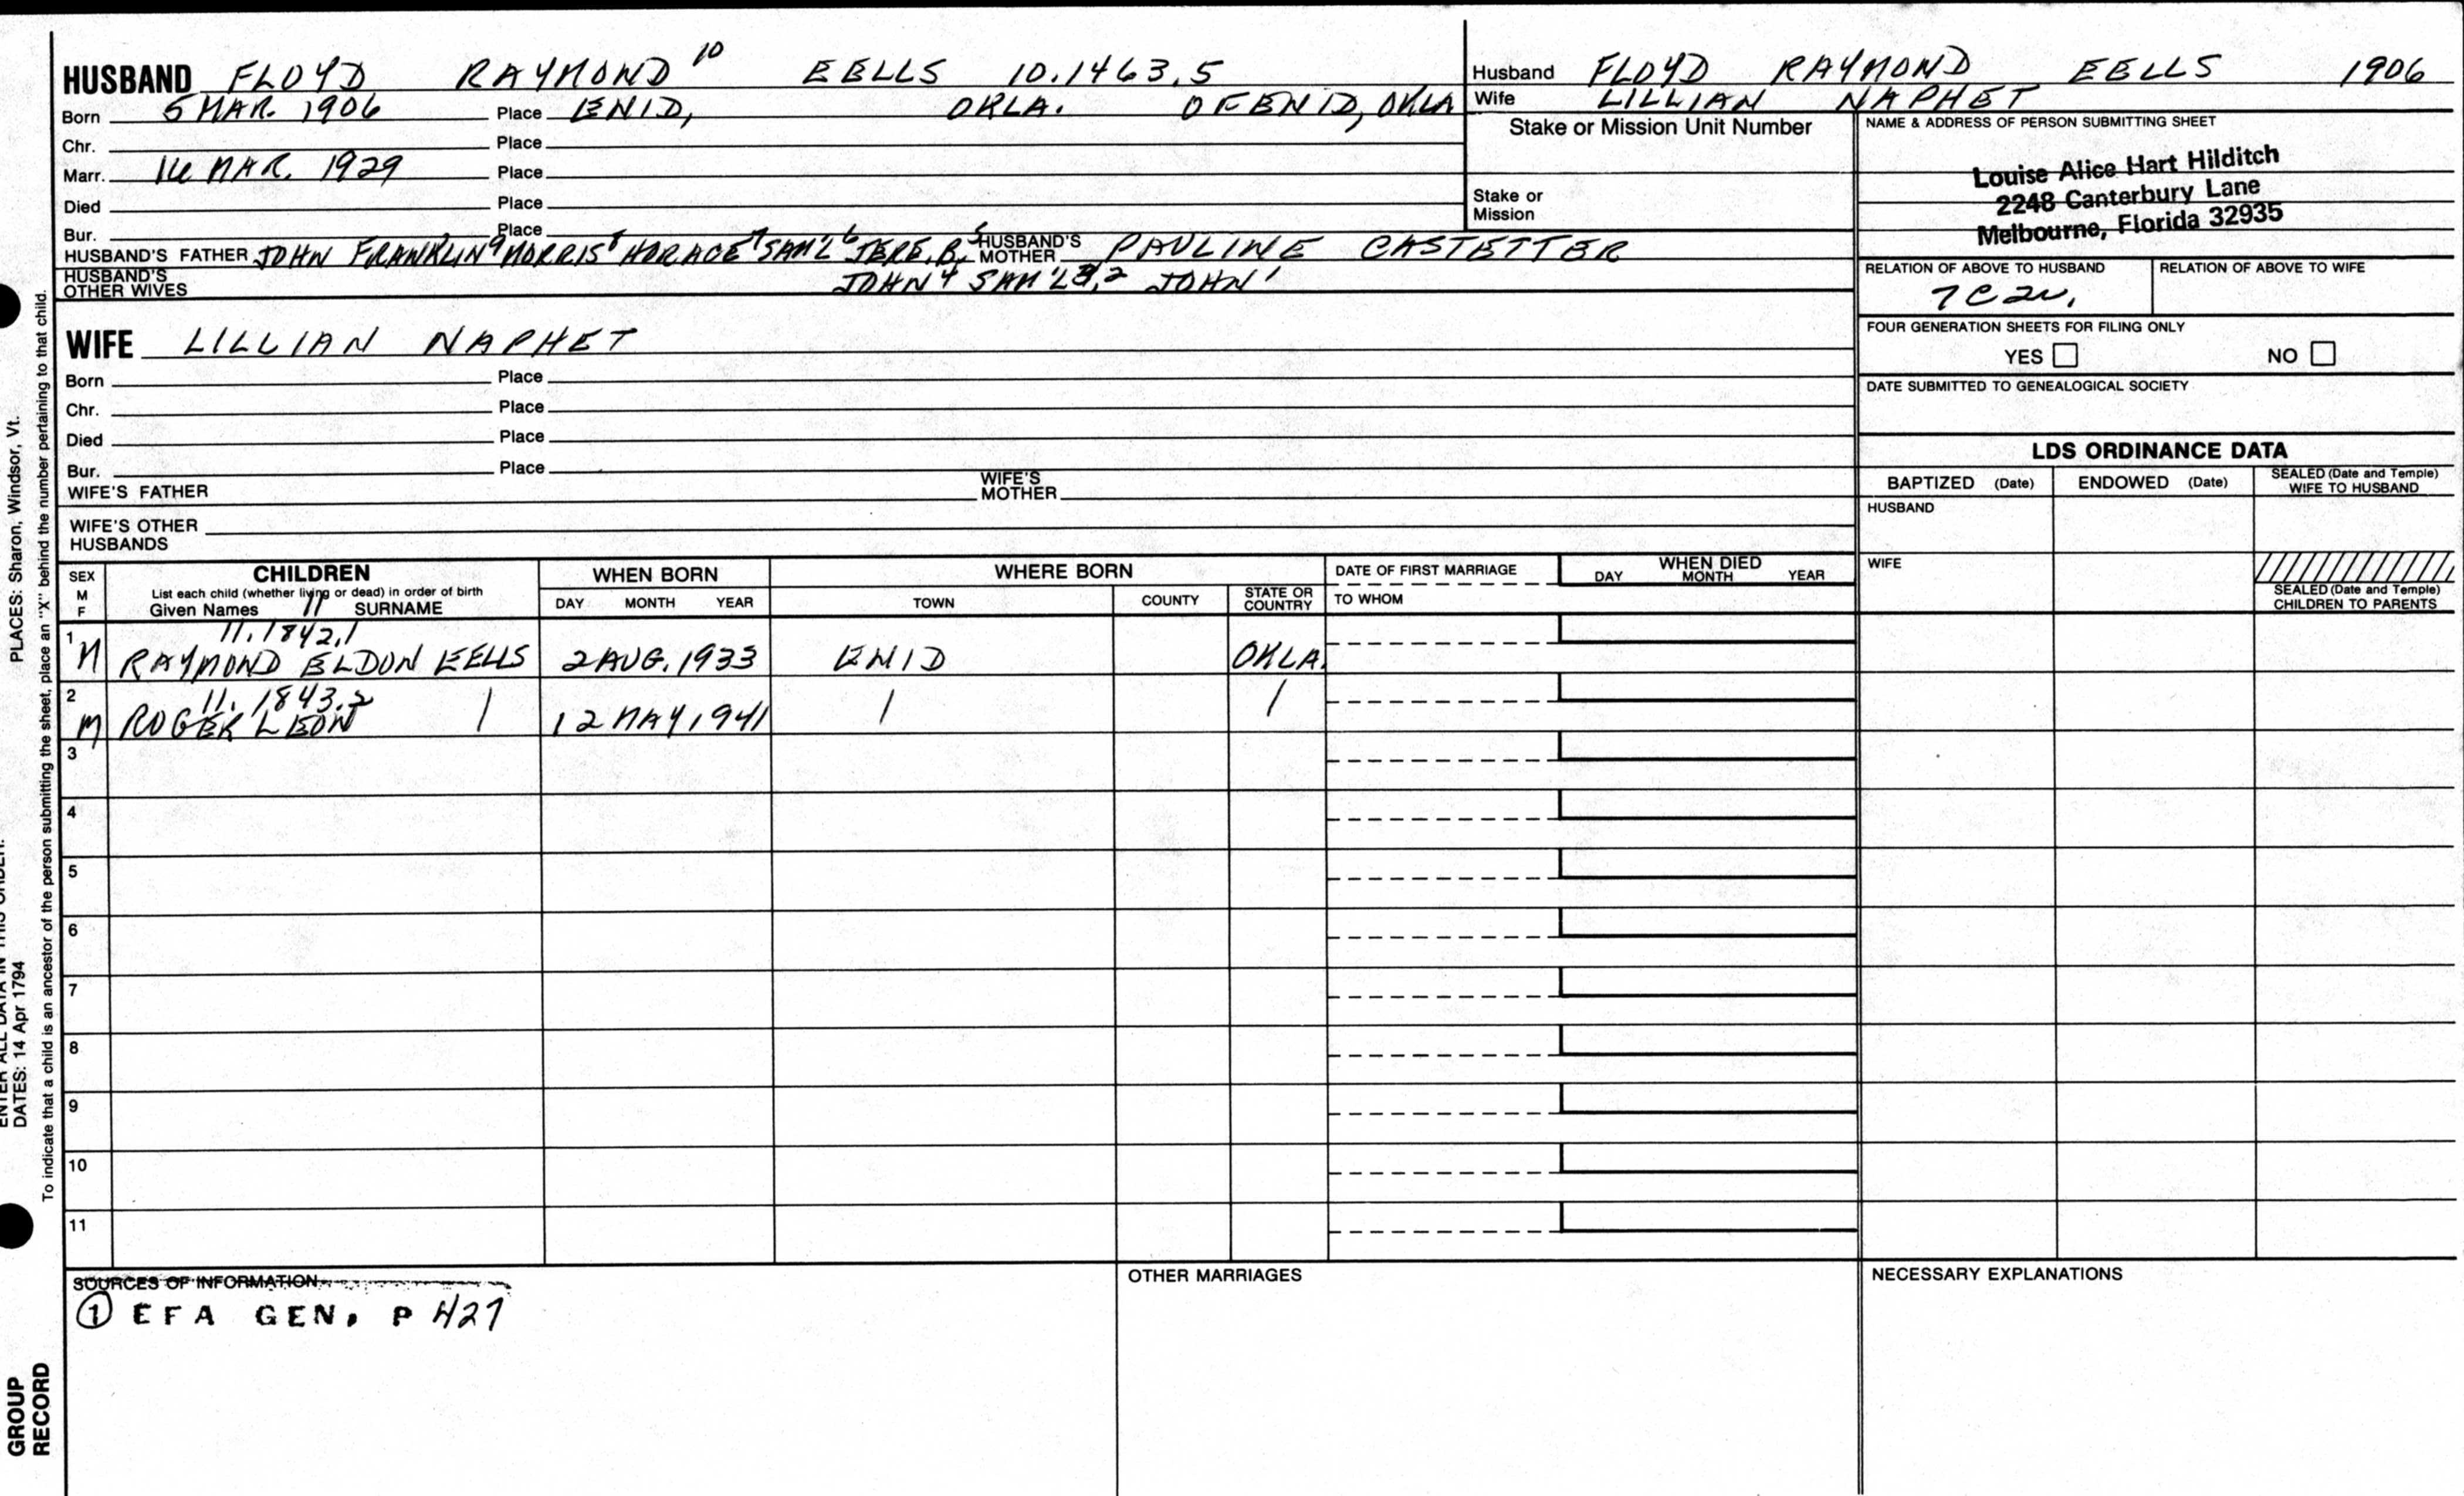 HUSBAND FLOYD RAYMOND 10 EELLS 10.1463.5
Born 5 MAR. 1906 Place ENID, OKLA. OF ENID, OKLA
Chr. Place
Marr. MAR. 1929 Place
Died Place
Bur. Place
HUSBAND'S FATHER JOHN FRANKLIN9 MORRIS8 HORACE7 SAM'L6 JERE. B.5 HUSBAND'S MOTHER PAULINE CASTETTER
HUSBAND'S OTHER WIVES JOHN4 SAM'L3,2 JOHN1
Husband FLOYD RAYMOND EELLS 1906
Wife LILLIAN NAPHET
Stake or Mission Unit Number
Stake or Mission
NAME & ADDRESS OF PERSON SUBMITTING SHEET
Louise Alice Hart Hilditch
2248 Canterbury Lane
Melbourne, Florida 32935
RELATION OF ABOVE TO HUSBAND RELATION OF ABOVE TO WIFE
7C2
FOUR GENERATION SHEETS FOR FILING ONLY
YES NO
DATE SUBMITTED TO GENEALOGICAL SOCIETY
WIFE LILLIAN NAPHET
Born Place
Chr. Place
Died Place
Bur. Place
WIFE'S FATHER WIFE'S MOTHER
WIFE'S OTHER HUSBANDS
LDS ORDINANCE DATA
BAPTIZED (Date) ENDOWED (Date) SEALED (Date and Temple) WIFE TO HUSBAND
HUSBAND
WIFE
SEALED (Date and Temple) CHILDREN TO PARENTS
SEX M F
CHILDREN
List each child (whether living or dead) in order of birth
Given Names 11 SURNAME
WHEN BORN
DAY MONTH YEAR
WHERE BORN
TOWN COUNTY STATE OR COUNTRY
DATE OF FIRST MARRIAGE
TO WHOM
WHEN DIED
DAY MONTH YEAR
11.1842.1
1 M RAYMOND ELDON EELLS 2 AUG. 1933 ENID OKLA.
11.1843.2
2 M ROGER LEON 12 MAY 1941
3
4
5
6
7
8
9
10
11
SOURCES OF INFORMATION
① EFA GEN. P 427
OTHER MARRIAGES
NECESSARY EXPLANATIONS
PLACES: Sharon, Windsor, Vt.
DATES: 14 Apr 1794
To indicate that a child is an ancestor of the person submitting the sheet, place an "X" behind the number pertaining to that child.
GROUP
RECORD